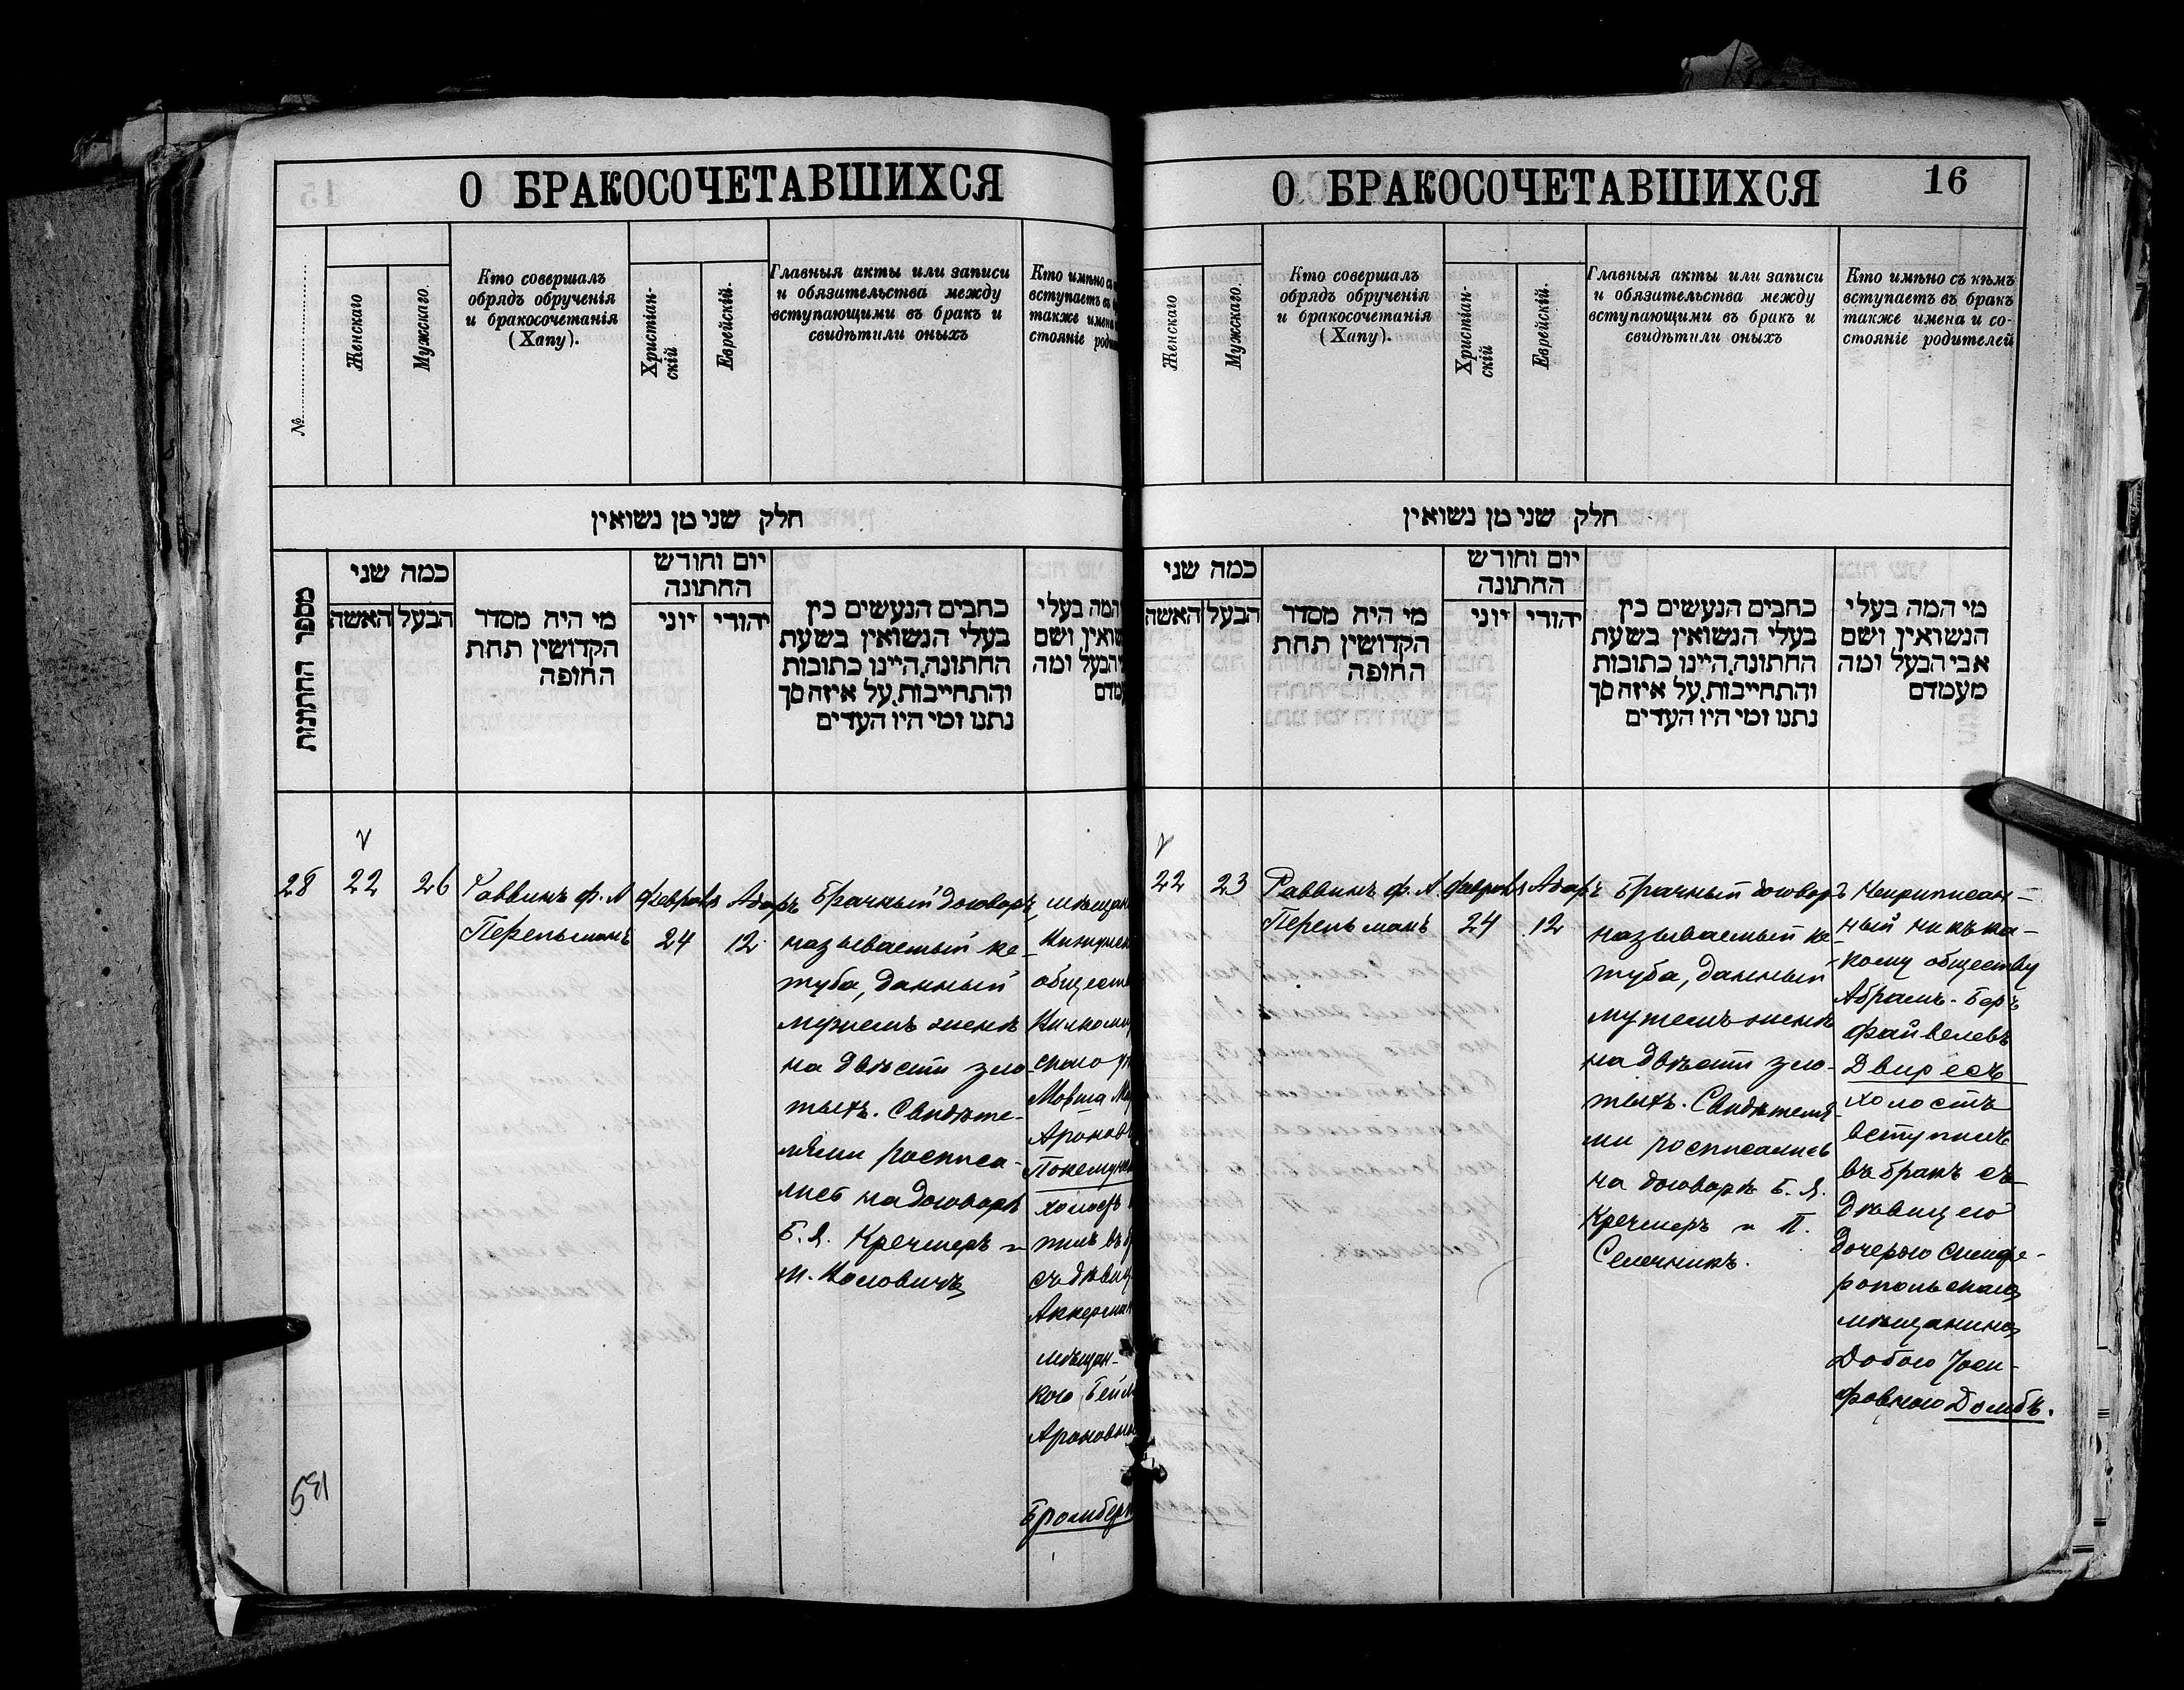 О БРАКОСОЧЕТАВШИХСЯ
№
Женскаго
Мужскаго.
Кто совершалъ
обрядъ обрученія
и бракосочетанія
(Хапу).
Христіан-
скій
Еврейскій.
Главныя акты или записи
и обязательства между
вступающими въ бракъ и
свидѣтили оныхъ
Кто имѣно
вступаетъ въ
также имена
стояніе
חלק שני מן נשואין
מספר החתונות
כמה שני
האשה
הבעל
מי היה מסדר
הקדושין תחת
החופה
יום וחודש
החתונה
יוני
יהודי
כתבים הנעשים בין
בעלי הנשואין בשעת
החתונה, היינו כתובות
והתחייבות, על איזה סך
נתנו ומי היו העדים
המה בעלי
ושם
הבעל ומה
28
22
26
Раввинъ ф. А
Перельманъ
Февраля
24
Адаръ
12
Брачный договоръ,
называемый ке-
туба, данный
мужемъ женѣ
на двѣсти зло-
тыхъ. Свидѣте-
лями росписа-
лись на договорѣ
Б. Я. Кречмеръ и
М. Каловичъ
Мовша
холостъ
въ
Аккерман
мѣщан-
кою Бейл
Ароновн
Бромберг
591
О БРАКОСОЧЕТАВШИХСЯ
16
Женскаго
Мужскаго.
Кто совершалъ
обрядъ обрученія
и бракосочетанія
(Хапу).
Христіан-
скій
Еврейскій.
Главныя акты или записи
и обязательства между
вступающими въ бракъ и
свидѣтили оныхъ
Кто имѣно съ кѣмъ
вступаетъ въ бракъ
также имена и со-
стояніе родителей
חלק שני מן נשואין
כמה שני
האשה
הבעל
מי היה מסדר
הקדושין תחת
החופה
יום וחודש
החתונה
יוני
יהודי
כתבים הנעשים בין
בעלי הנשואין בשעת
החתונה, היינו כתובות
והתחייבות, על איזה סך
נתנו ומי היו העדים
מי המה בעלי
הנשואין ושם
אבי הבעל ומה
מעמדם
22
23
Раввинъ ф. А.
Перельманъ
Февраля
24
Адаръ
12
Брачный договоръ
называемый ке-
туба, данный
мужемъ женѣ
на двѣсти зло-
тыхъ. Свидѣтеля-
ми росписались
на договорѣ Б. Я.
Кречмеръ и П.
Селечникъ.
Неприписан-
ный ни къ ка-
кому обществу
Абрамъ-Беръ
Файвелевъ
Двиресъ
холостъ
вступилъ
въ бракъ съ
дѣвицею
дочерью Симфе-
ропольскаго
мѣщанина
Добою Іоси-
фовною Домбъ.